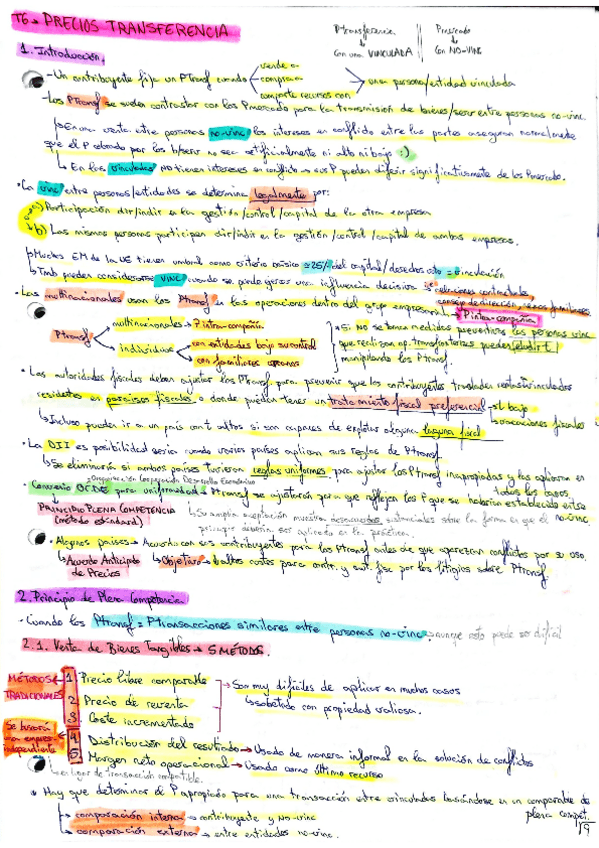 T6. PRECIOS TRANSFERENCIA
Ptransferencia || Pmercado
Con una VINCULADA || Con NO-VINC
1. Introducción
vende a
- Un contribuyente fija un PTransf cuando compra a una persona/entidad vinculada
comparte recursos con
- Los PTransf se suelen contrastar con los Pmercado para la transmisión de bienes/serv entre personas no-vinc.
En una venta entre personas no-vinc los intereses en conflicto entre las partes aseguran normalmente
que el P cobrado por los b/serv no sea artificialmente ni alto ni bajo :)
En las vinculadas NO tienen intereses en conflicto → sus P pueden diferir significativamente de los Pmercado.
• La vinc entre personas/entidades se determina legalmente por:
a) Participación dir/indir en la gestión/control/capital de la otra empresa
b) Las mismas personas participan dir/indir en la gestión/control/capital de ambas empresas.
Muchos EM de la UE tienen umbral como criterio básico ≈25% del capital/derechos voto = vinculación
Tamb pueden considerarse VINC cuando se puede ejercer una influencia decisiva: relaciones contractuales
consejo de dirección, lazos familiares
• Las multinacionales usan los Ptransf en las operaciones dentro del grupo empresarial → Pintra-compañía
multinacionales → P. intra-compañía
Ptransf
individuos con entidades bajo su control
con familiares cercanos
• Si NO se toman medidas preventivas las personas vinc
que realizan op. transfronterizas pueden eludir t
manipulando los PTransf.
• Las autoridades fiscales deben ajustar los PTransf para prevenir que los contribuyentes trasladen rentas a vinculados
residentes en paraísos fiscales o donde puedan tener un tratamiento fiscal preferencial → t bajo
vacaciones fiscales
Incluso puede ir a un país con t altos si son capaces de explotar alguna laguna fiscal
• La DII es posibilidad seria cuando varios países aplican sus reglas de PTransf.
Se eliminaría si ambos países tuvieran reglas uniformes para ajustar los PTransf inapropiados y las aplicaran en
todos los casos
Organización Cooperación Desarrollo Económico
• Convenio OCDE para uniformidad → PTransf se ajustarán para que reflejen los P que se habrían establecido entre
no-vinc
PRINCIPIO PLENA COMPETENCIA
(método estándar)
Su amplia aceptación muestra desacuerdos sustanciales sobre la forma en que el
principio debería ser aplicado en la práctica.
• Algunos países → Acuerdo con sus contribuyentes para los PTransf antes de que aparezcan conflictos por su uso
Acuerdo Anticipado
de Precios
Objetivo → altos costes para contr. y aut. fisc por los litigios sobre PTransf.
2. Principio de Plena Competencia
• Cuando los Ptransf = Ptransacciones similares entre personas no-vinc, aunque esto puede ser difícil
2.1. Venta de Bienes Tangibles → 5 MÉTODOS.
MÉTODOS TRADICIONALES
1. Precio libre comparable
2. Precio de reventa
3. Coste incrementado
Son muy difíciles de aplicar en muchos casos
sobre todo con propiedad valiosa.
Se buscará
una empresa
independiente
4. Distribución del resultado → Usado de manera informal en la solución de conflictos
5. Margen neto operacional → Usado como último recurso
en lugar de transacción comparable.
• Hay que determinar el P apropiado para una transacción entre vinculadas basándose en un comparable de
plena compet.
comparación interna → contribuyente y NO-vinc
comparación externa → entre entidades no-vinc.
1/9